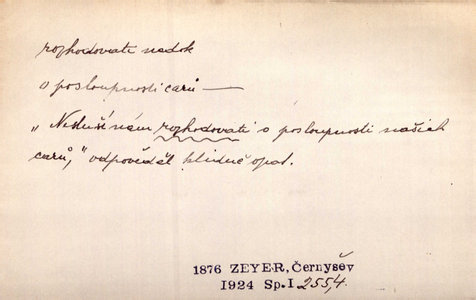 rozhodovati nedok
o posloupnosti carů —
„Nesluší nám rozhodovati o posloupnosti našich
carů,“ odpověděl klidně opat.
1876 ZEYER, Černyšev
1924 Sp.I 255,4